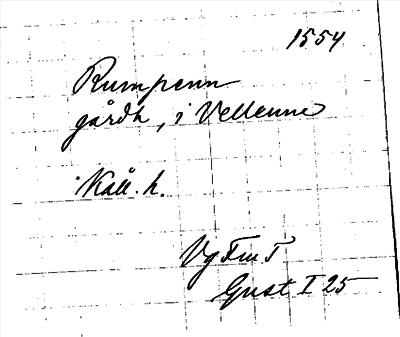 1554
Rumpenn
gårdh, i Vellenne
Kåll. h.
VgFmT
Gust I 25